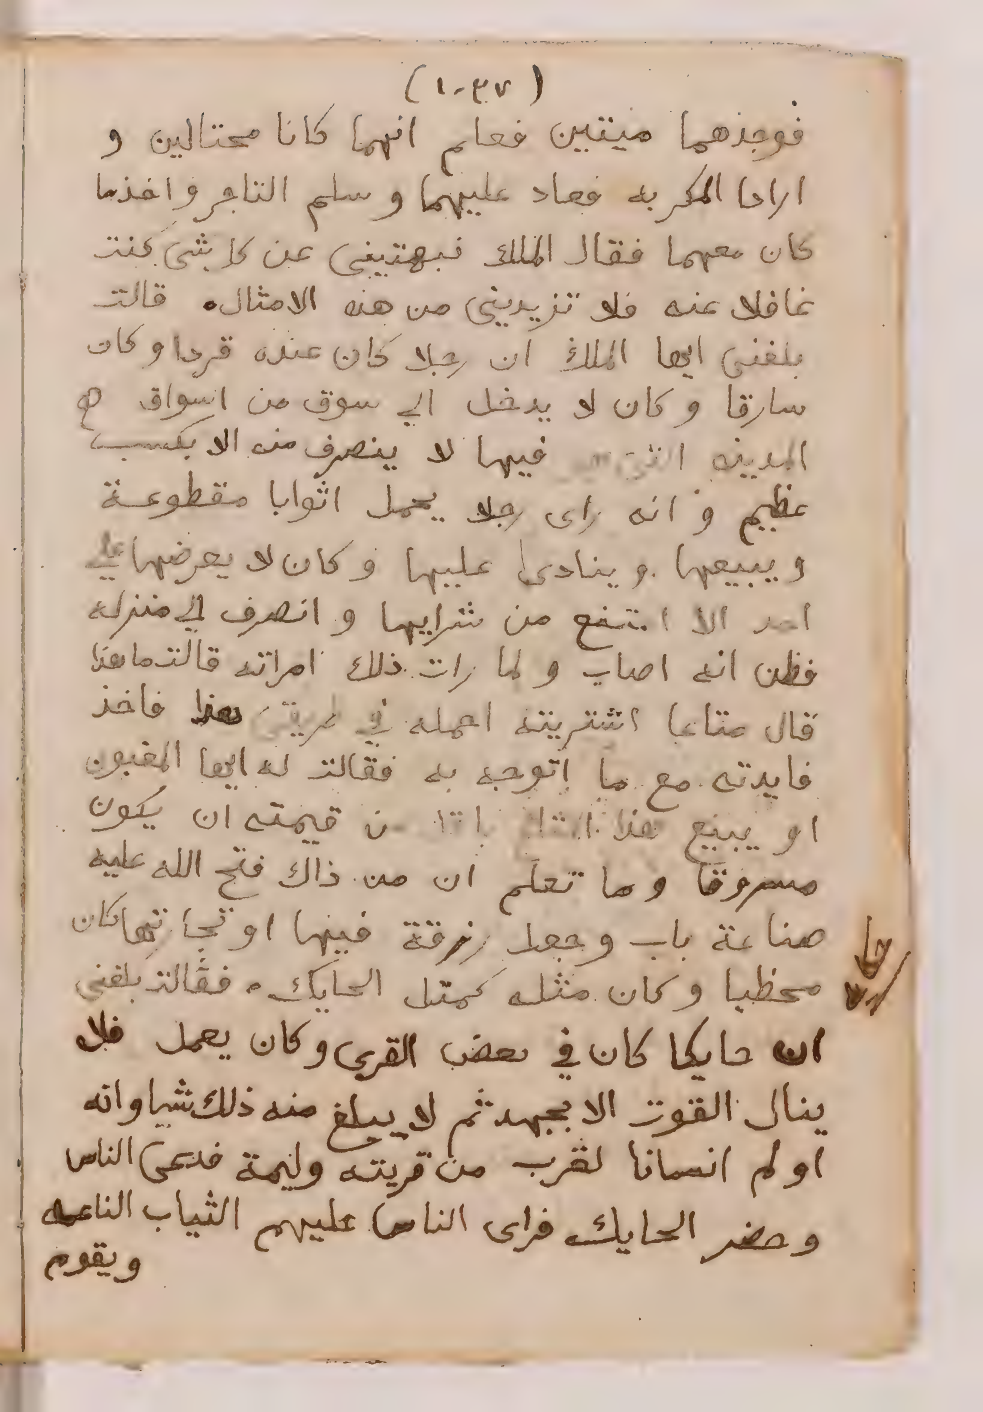 (١٠٣٧)
فوجدهما ميتين فعلم انهما كانا محتالين و
ارادا المكر به فعاد عليهما وسلم التاجر واخذ ما
كان معهما فقال الملك نبهتيني عن كل شي كنت
غافلا عنه فلا تزيديني من هذه الامثال. قالت
بلغني ايها الملك ان رجلا كان عنده قردا وكان
سارقا وكان لا يدخل الي سوق من اسواق
المدينه التي فيها لا ينصرف منه الا بكسب
عظيم و انه راى رجلا يحمل اثوابا مقطوعة
ويبيعها وينادى عليها وكان لا يعرضها على
احد الا انتفع من شرايها وانصرف الي منزله
فظن انه اصاب ولما رات ذلك امراته قالت ما هذا
قال متاعا اشتريته احمله في طريقي هذا فاخذ
فايدته مع ما اتوجه به فقالت له ايها المغبون
او يبيع هذا قيمته ان يكون
مسروقا وما تعلم ان من ذاك فتح الله عليه
صناعة باب وجعل رزقة فيها او تجارتها كان
محظيا وكان مثله كمتل الحايك. فقالت بلغني
ان حايكا كان في بعض القرى وكان يعمل فلا
ينال القوت الا بجهد ثم لا يبلغ منه ذلك شيا وانه
اولم انسانا لقرب من قريته وليمة فدعى الناس
وحضر الحايك فراى الناس عليهم الثياب الناعمه
ويقوم